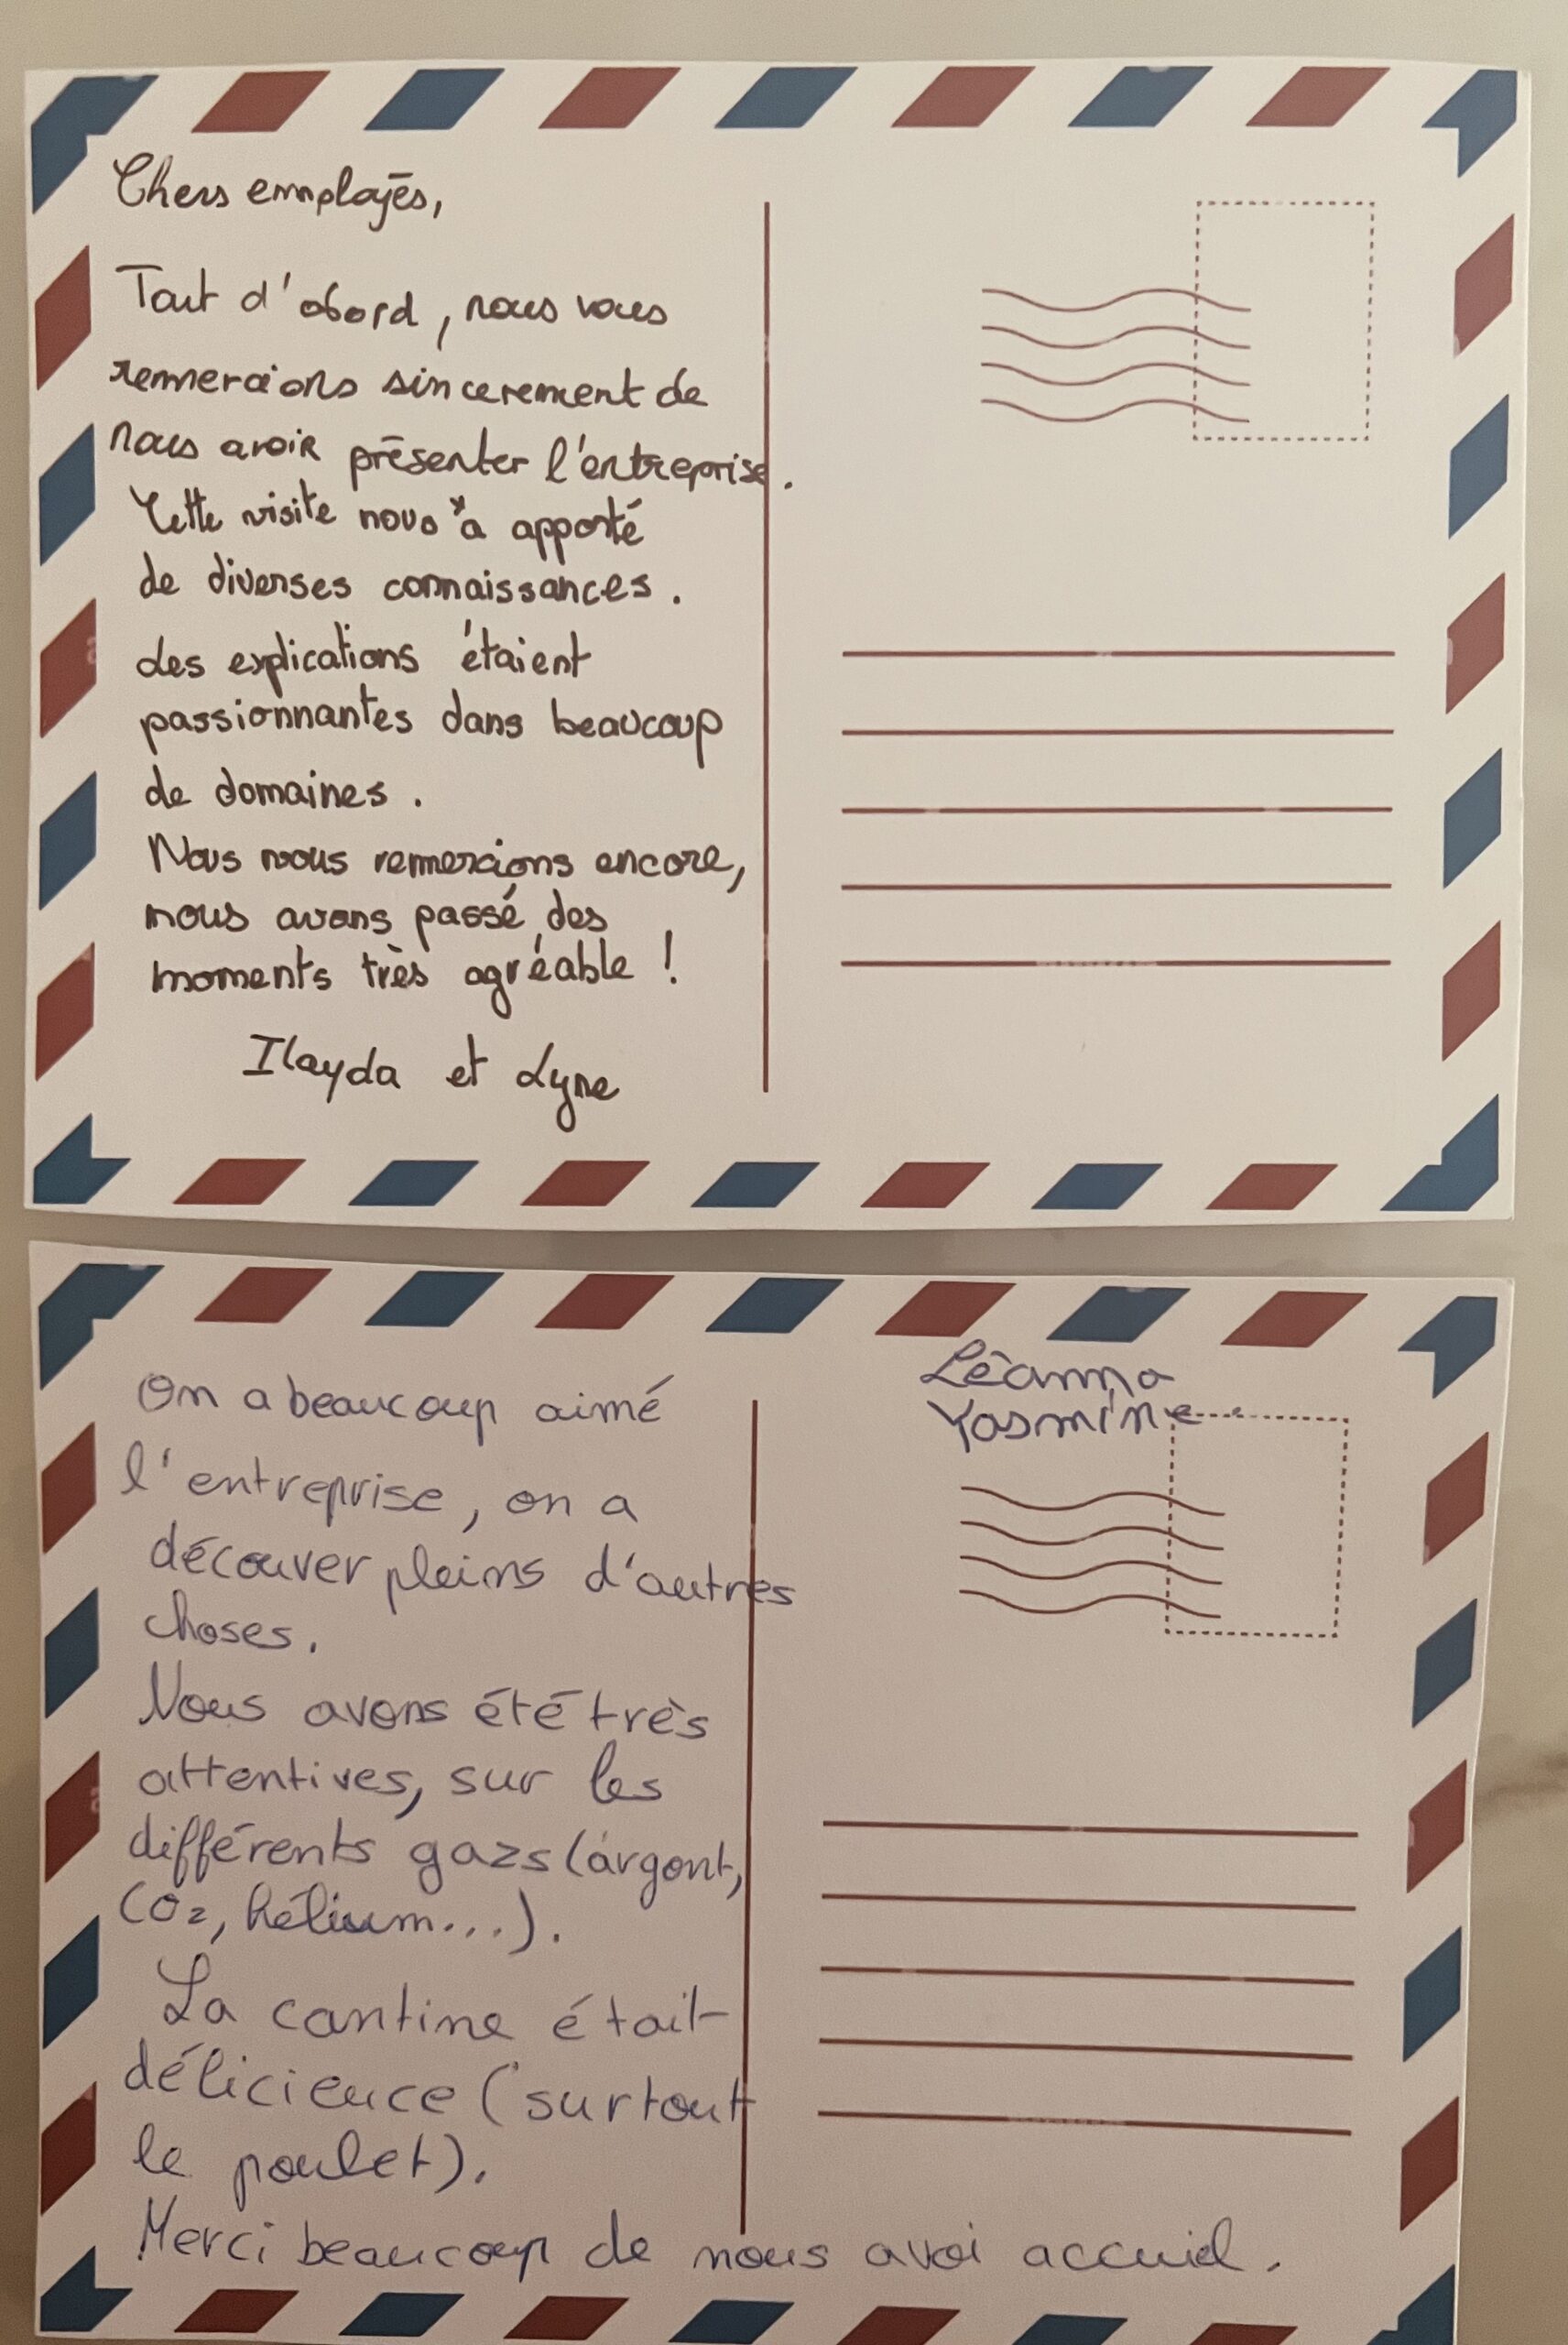 Chers employés,
Tout d'abord, nous vous
remercions sincerement de
nous avoir présenter l'entreprise.
Cette visite nous a apporté
de diverses connaissances.
Les explications étaient
passionnantes dans beaucoup
de domaines.
Nous vous remercions encore,
nous avons passé des
moments très agréable !
Ilayda et Lyne
Léanna
Yasmine
On a beaucoup aimé
l'entreprise, on a
découver pleins d'autres
choses.
Nous avons été très
attentives, sur les
différents gazs (argont,
CO2, hélium...).
La cantine était
délicieuce (surtout
le poulet).
Merci beaucoup de nous avoi accuiel.